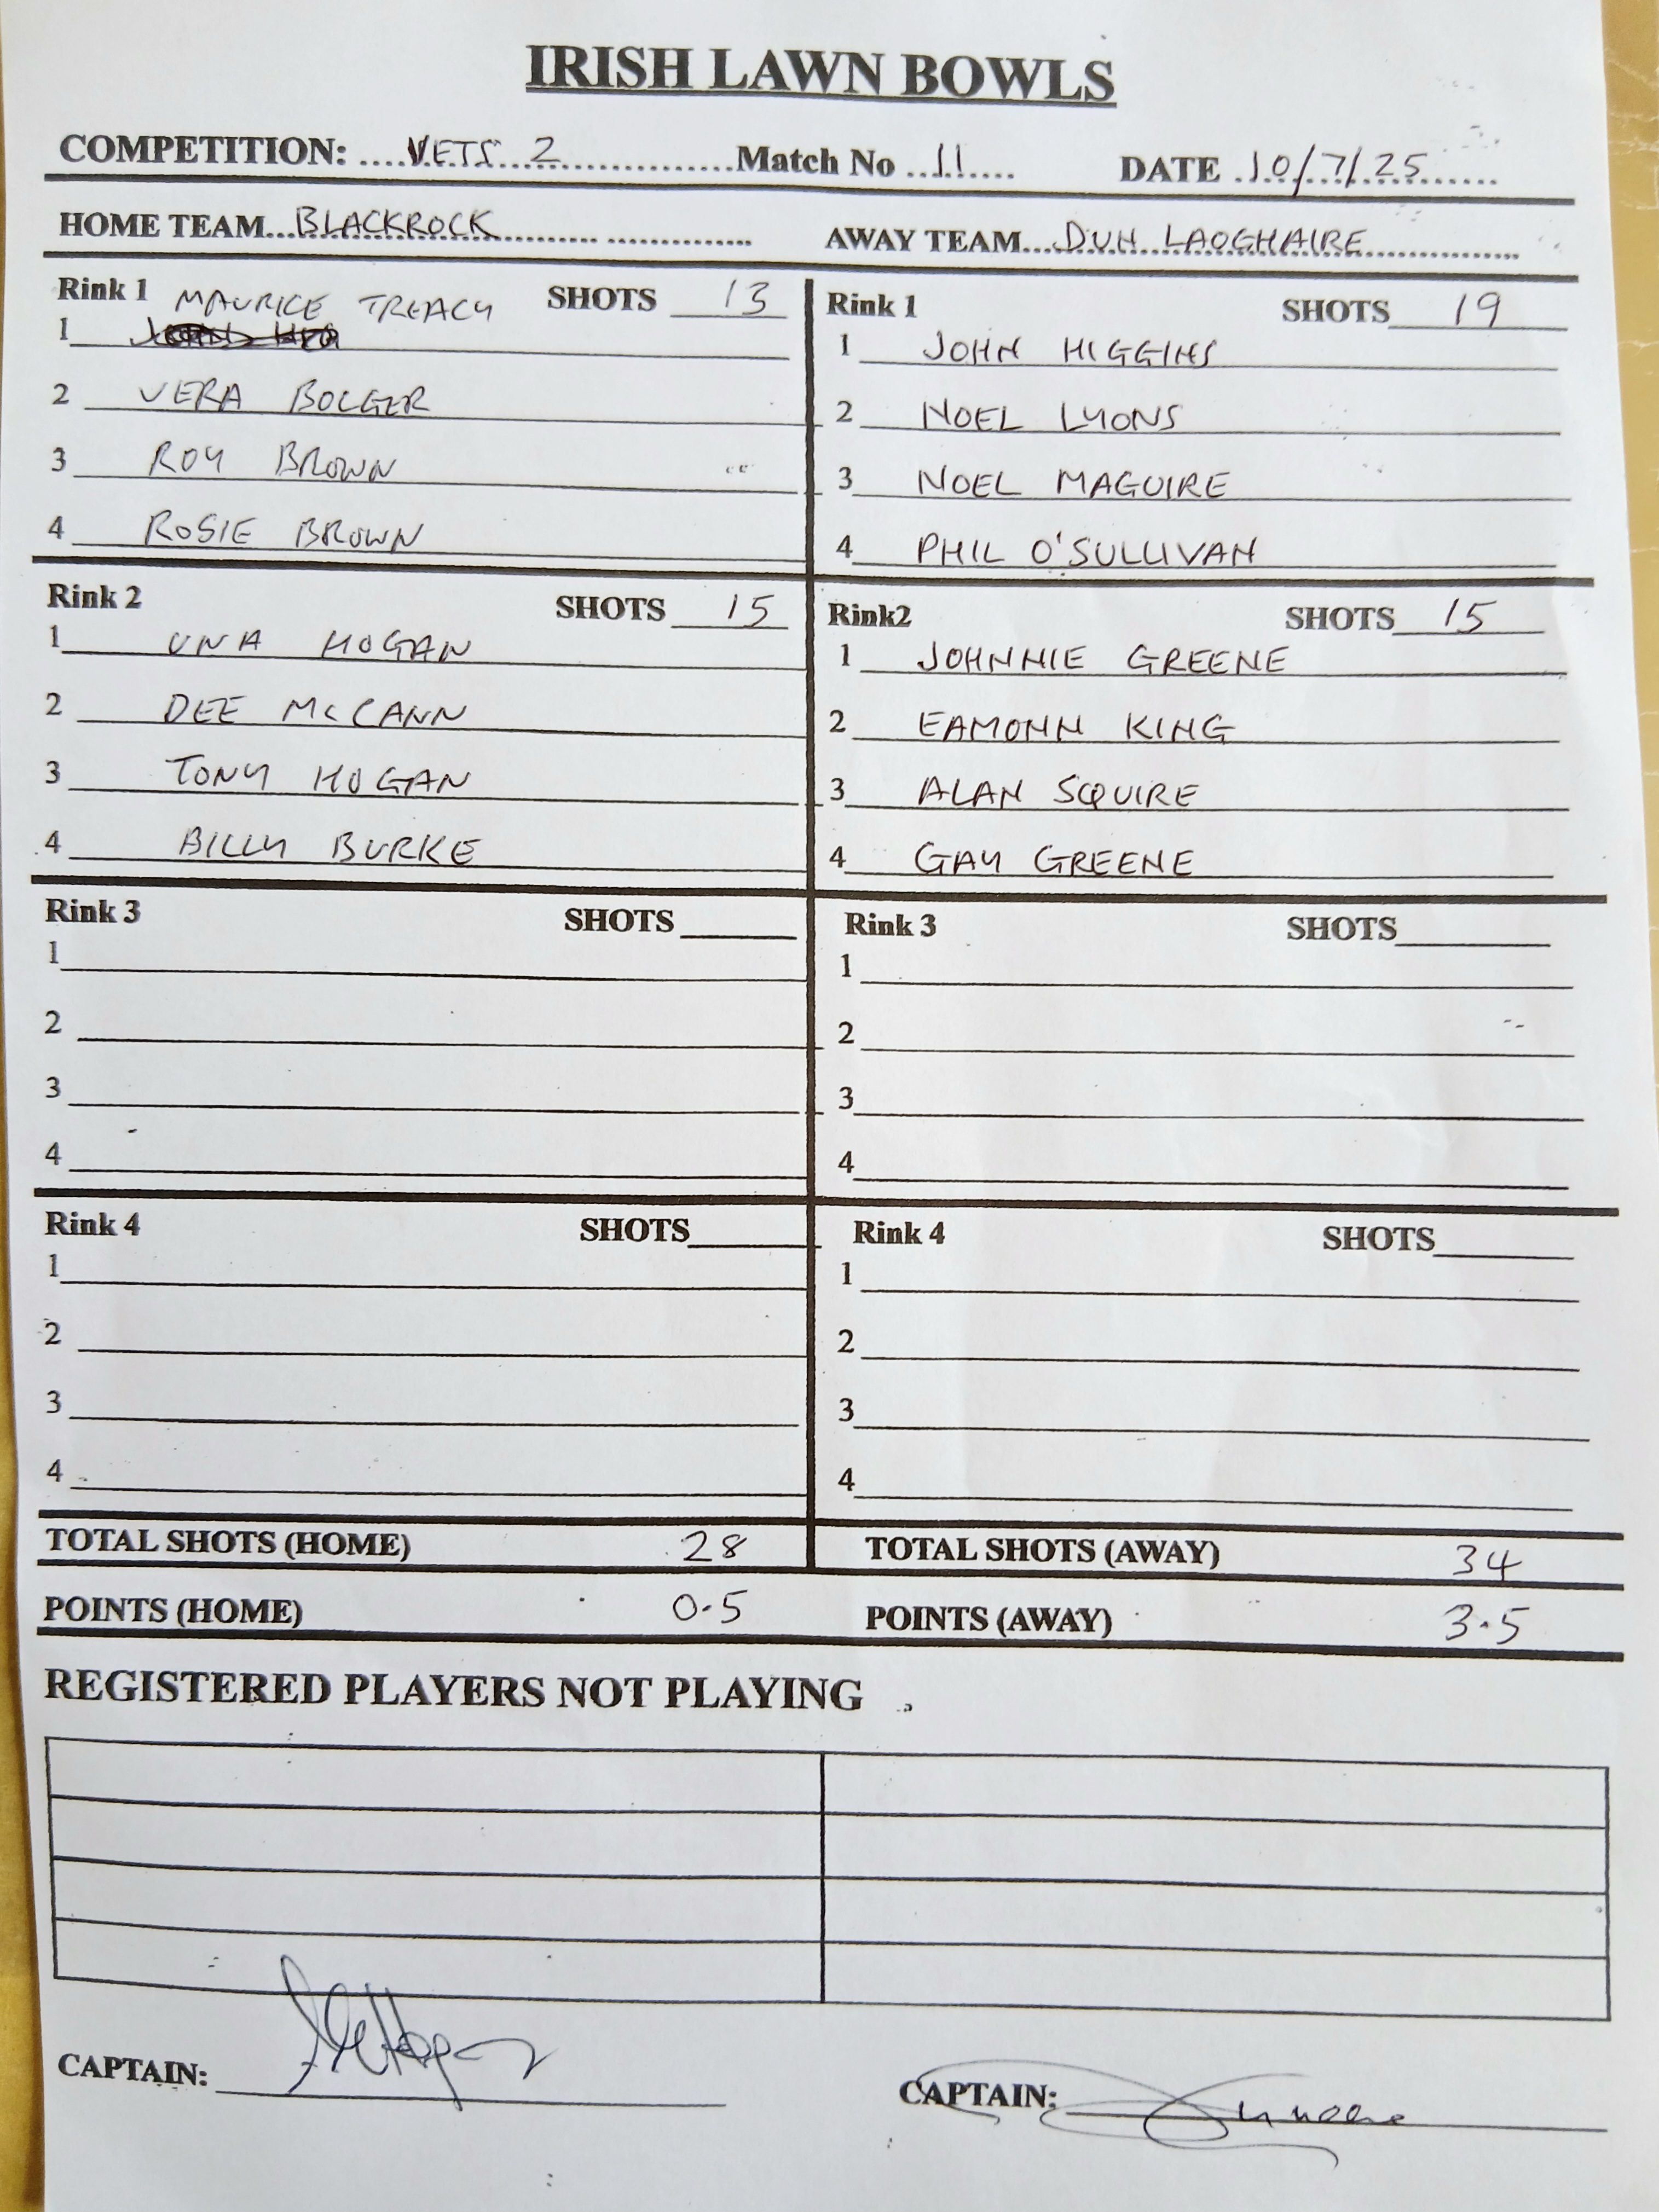 IRISH LAWN BOWLS
COMPETITION: ....VETS 2....................Match No ..11..... DATE .10/7/25......
HOME TEAM...BLACKROCK.......... ............... AWAY TEAM...DUN LAOGHAIRE................
Rink 1 MAURICE TREACY SHOTS 13
1
2 VERA BOLGER
3 ROY BROWN
4 ROSIE BROWN
Rink 1 SHOTS 19
1 JOHN HIGGINS
2 NOEL LYONS
3 NOEL MAGUIRE
4 PHIL O'SULLIVAN
Rink 2 SHOTS 15
1 UNA HOGAN
2 DEE McCANN
3 TONY HOGAN
4 BILLY BURKE
Rink2 SHOTS 15
1 JOHNNIE GREENE
2 EAMONN KING
3 ALAN SQUIRE
4 GAY GREENE
Rink 3 SHOTS
1
2
3
4
Rink 3 SHOTS
1
2
3
4
Rink 4 SHOTS
1
2
3
4
Rink 4 SHOTS
1
2
3
4
TOTAL SHOTS (HOME) 28 TOTAL SHOTS (AWAY) 34
POINTS (HOME) 0.5 POINTS (AWAY) 3.5
REGISTERED PLAYERS NOT PLAYING
CAPTAIN:
CAPTAIN: